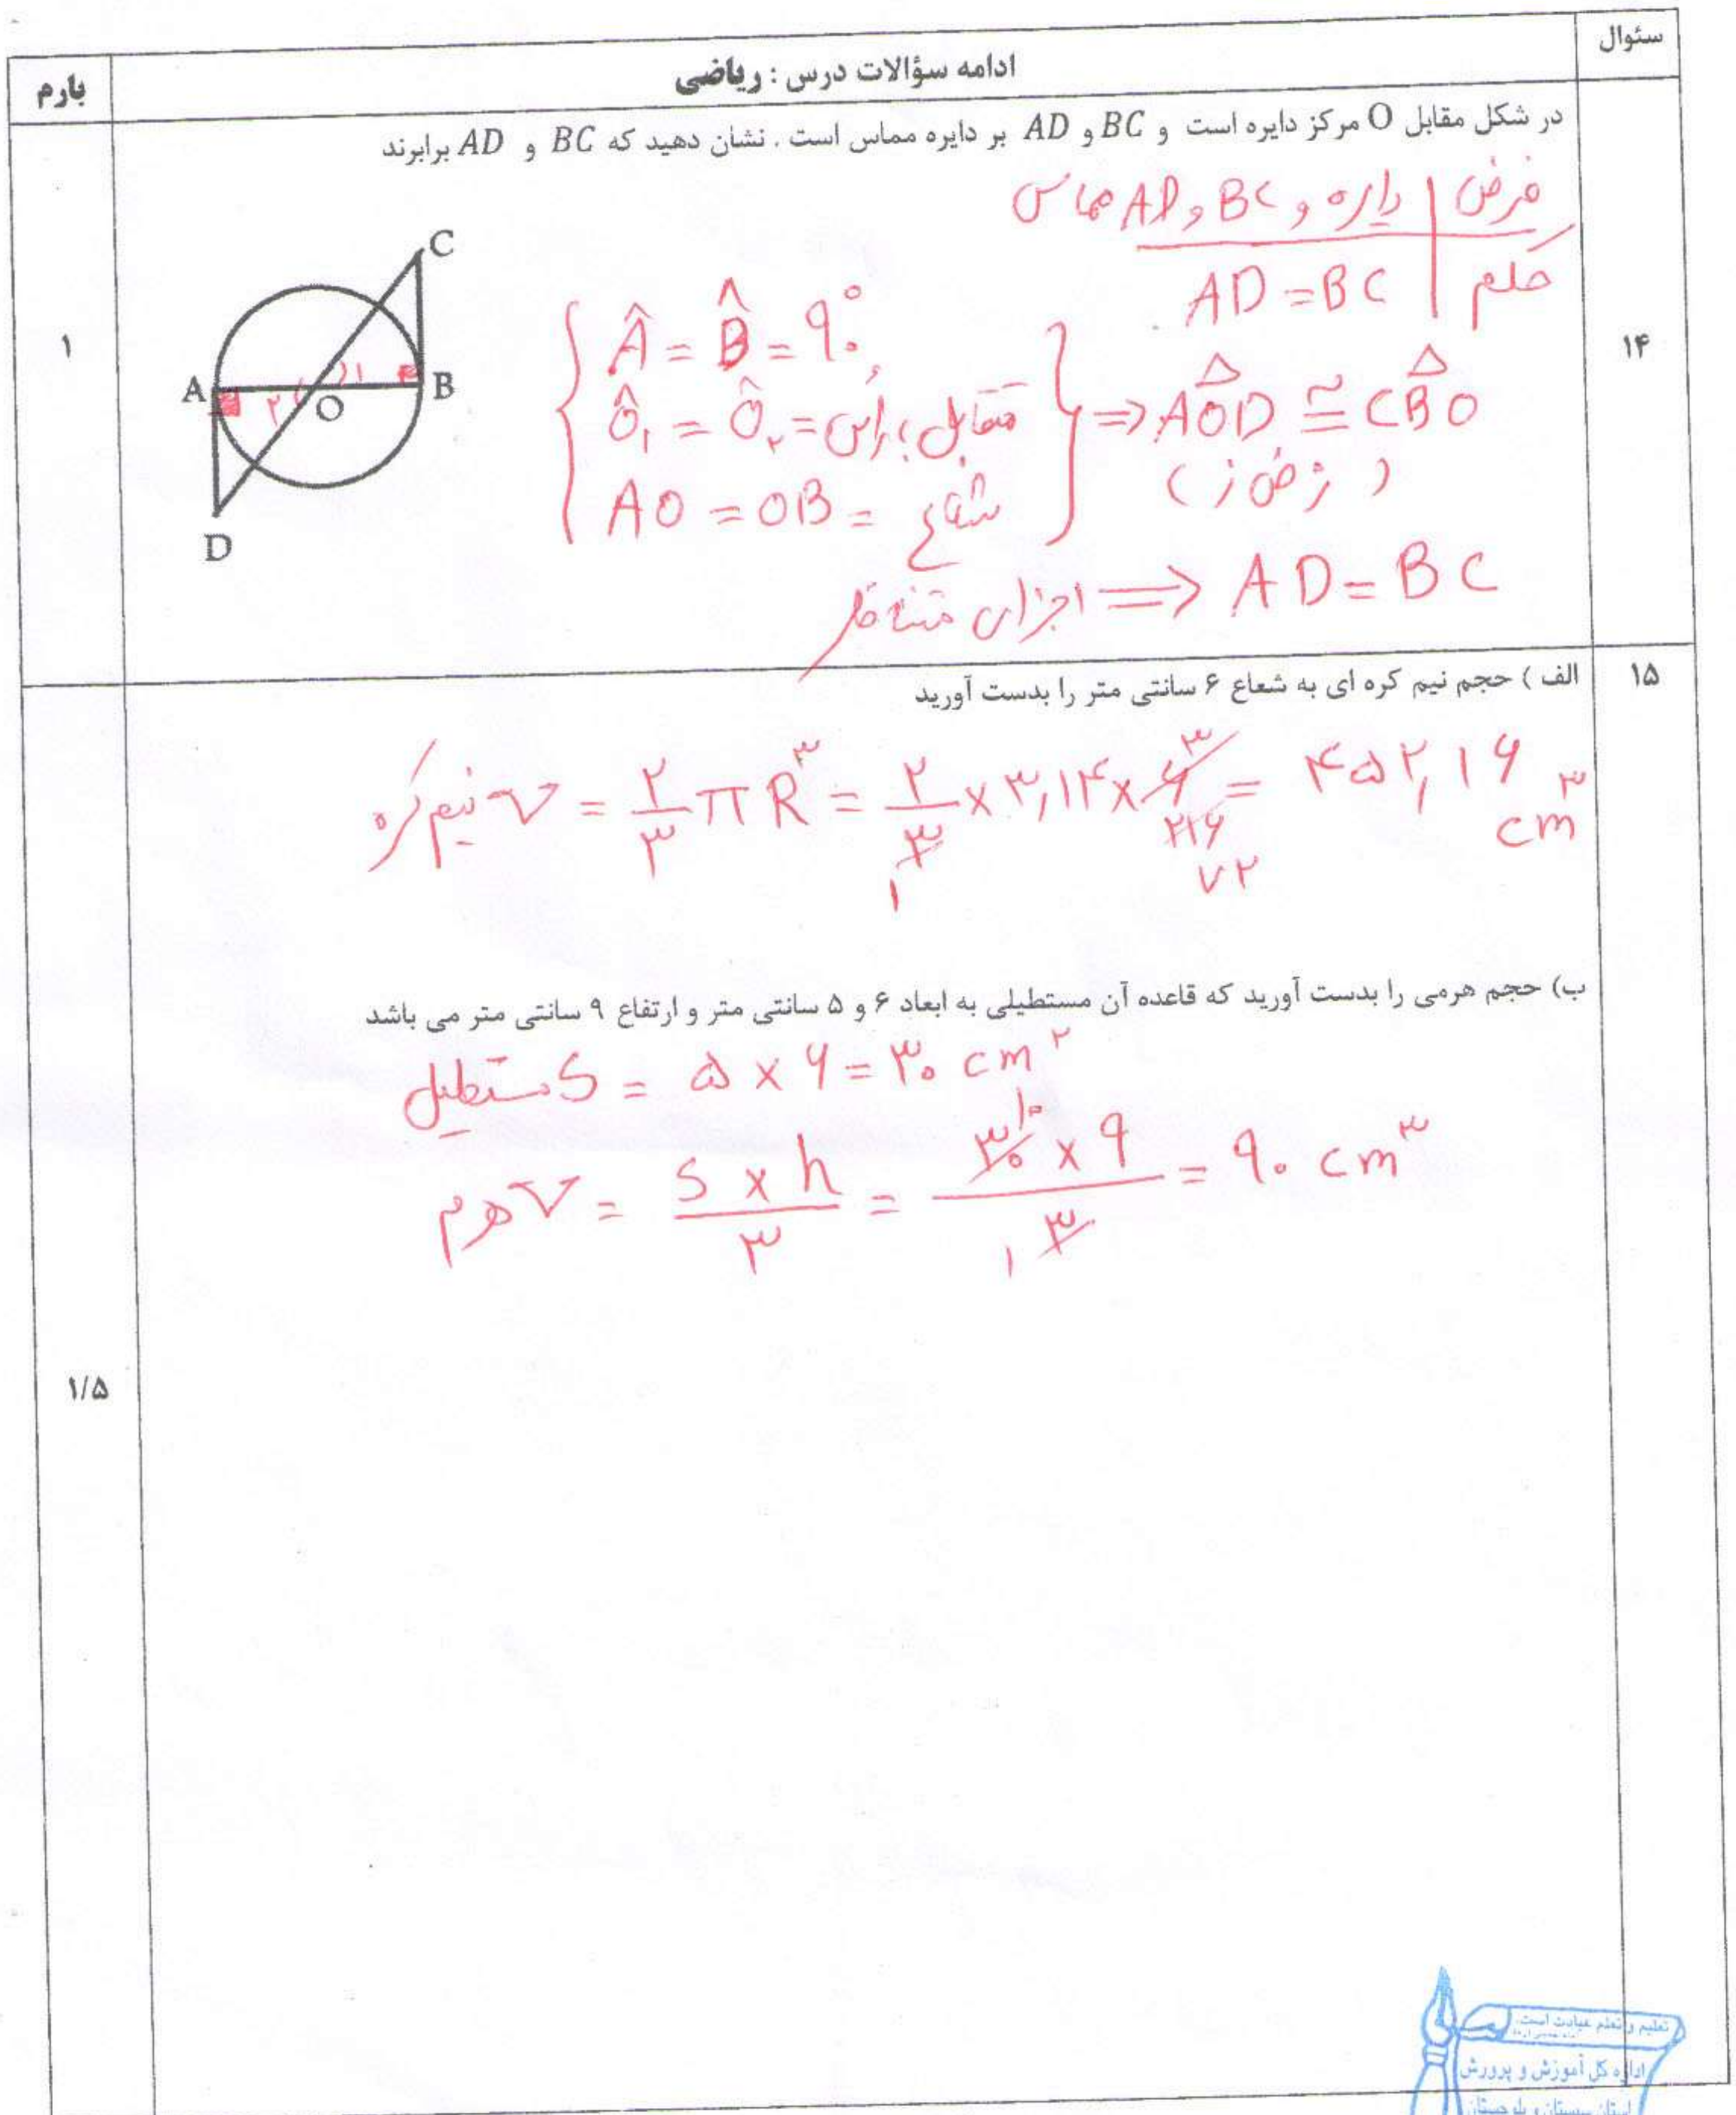 سئوال
ادامه سؤالات درس : ریاضی
بارم
۱۴
در شکل مقابل O مرکز دایره است و BC و AD بر دایره مماس است . نشان دهید که BC و AD برابرند
۱
فرض | دایره و BC و AD مماس
حکم | AD = BC
C
A
B
O
D
۱
۲
Â = B̂ = ۹۰°
Ô₁ = Ô₂ = متقابل به رأس
AO = OB = شعاع
⇒ AOD ≅ CBO
( ز ض ز )
اجزای متناظر ⇒ AD = BC
۱۵
الف ) حجم نیم کره ای به شعاع ۶ سانتی متر را بدست آورید
V نیم کره = ۲/۳ πR³ = ۲/۳ × ۳,۱۴ × ۶³ = ۴۵۲,۱۶ cm³
۲۱۶
۱
۷۲
ب) حجم هرمی را بدست آورید که قاعده آن مستطیلی به ابعاد ۶ و ۵ سانتی متر و ارتفاع ۹ سانتی متر می باشد
S مستطیل = ۵ × ۶ = ۳۰ cm²
۱۰
V هرم = S × h / ۳ = ۳۰ × ۹ / ۳ = ۹۰ cm³
۱
۱/۵
تعلیم و تعلم عبادت است.
اداره کل آموزش و پرورش
استان سیستان و بلوچستان